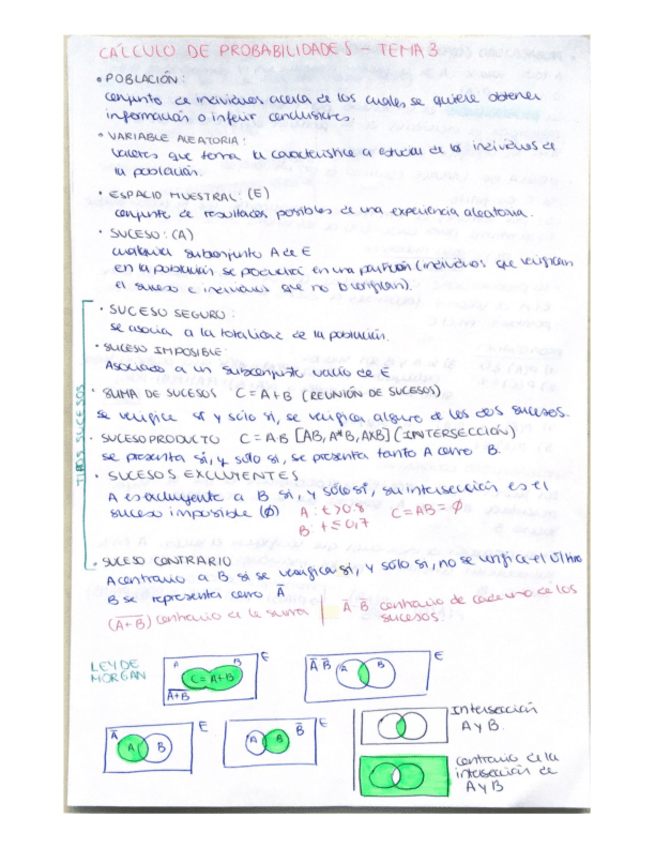 CÁLCULO DE PROBABILIDADES - TEMA 3
• POBLACIÓN:
conjunto de individuos acerca de los cuales se quiere obtener
información o inferir conclusiones.
• VARIABLE ALEATORIA:
valores que toma la característica a estudiar de los individuos de
la población.
• ESPACIO MUESTRAL: (E)
conjunto de resultados posibles de una experiencia aleatoria.
• SUCESO: (A)
cualquier subconjunto A de E
en la población se producirá en una partición (individuos que verifican
el suceso e individuos que no lo verifican).
TIPOS SUCESOS
• SUCESO SEGURO:
se asocia a la totalidad de la población.
• SUCESO IMPOSIBLE:
Asociado a un subconjunto vacío de E
• SUMA DE SUCESOS C = A+B (REUNIÓN DE SUCESOS)
se verifica sí y sólo si, se verifica alguno de los dos sucesos.
• SUCESO PRODUCTO C = A·B [AB, A*B, AXB] (INTERSECCIÓN)
se presenta si, y sólo si, se presenta tanto A como B.
• SUCESOS EXCLUYENTES
A es excluyente a B si, y sólo sí, su intersección es el
suceso imposible (Ø) A: t>0.8 C=AB=Ø
B: t≤0,7
• SUCESO CONTRARIO
A contrario a B si se verifica sí, y sólo si, no se verifica el último
B se representa como Ā
(A̅+̅B̅) contrario de la suma | Ā·B̅ contrario de cada uno de los
sucesos.
LEY DE
MORGAN
A B E
C = A+B
A̅+̅B̅
Ā B̅ A B E
Ā A B E
A B B̅ E
Intersección
A y B.
contrario de la
intersección de
A y B